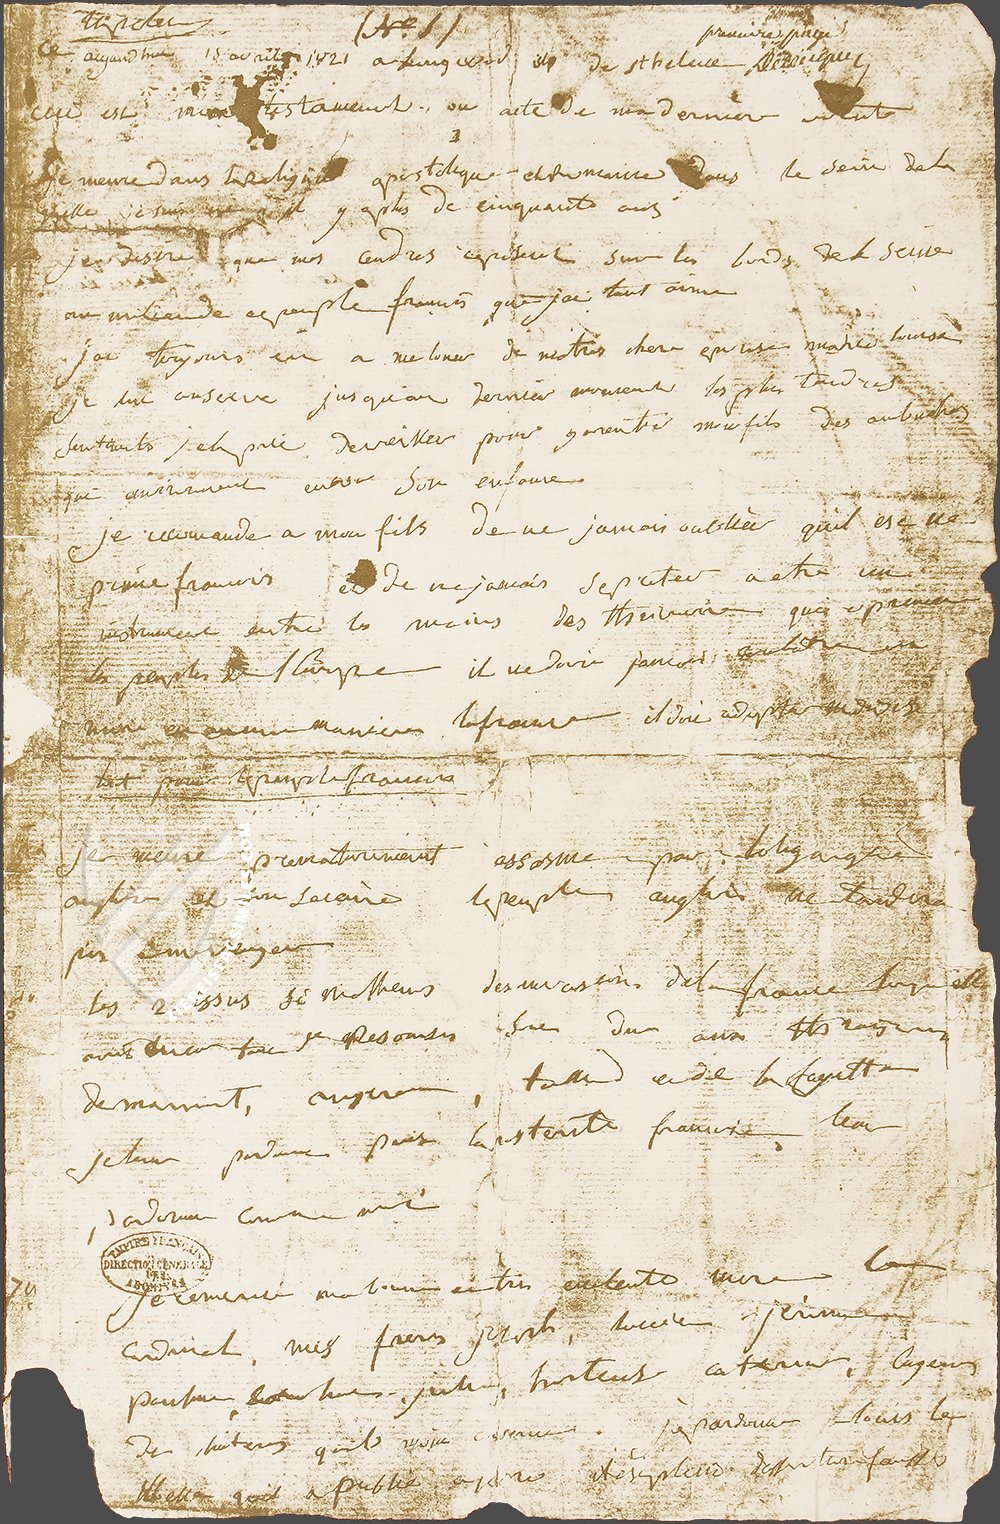 (No 1)
ce aujourdhui 15 avril 1821 a longwood ile de st helene
ceci est mon testament ou acte de ma derniere volonté
1
je meurs dans la religion apostolique et romaine dans le sein de la
quelle je suis né il y a plus de cinquante ans
je desire que mes cendres reposent sur les bords de la seine
au milieu de ce peuple francois que j'ai tant aimé
j'ai toujours eu a me louer de ma très chere epouse marie louise
je lui conserve jusqu'au dernier moment les plus tendres
sentiments je la prie de veiller pour garentir mon fils des embuches
qui environnent encore son enfance
je recomande a mon fils de ne jamais oublier qu'il est né
prince francois et de ne jamais se preter a etre un
instrument entre les mains des triumvirs qui oppriment
les peuples de l'europe il ne doit jamais combattre ni
nuire en aucune maniere la france il doit adopter ma devise
tout pour le peuple francois
je meurs prematurément assassiné par l'oligarchie
anglaise et son sicaire le peuple anglais ne tardera
pas a me venger
les 2 issus si malheureuses des invasions de la france lorsqu'elle
avait encore tant de resources sont dues aux trahisons
de marmont, augereau, talleyrand et de la fayette
je leur pardonne puisse la posterité francoise leur
pardonner comme moi
EMPIRE FRANÇAIS
DIRECTION GENERALE
DES
ARCHIVES
je remercie ma bonne et très excellente mere le
cardinal, mes freres joseph, lucien jérome
pauline, caroline julie, hortense catarine, eugene
de l'interet qu'ils m'ont conservé. je pardonne a louis le
libelle qu'il a publié en 1820 il est plein d'assertions fausses